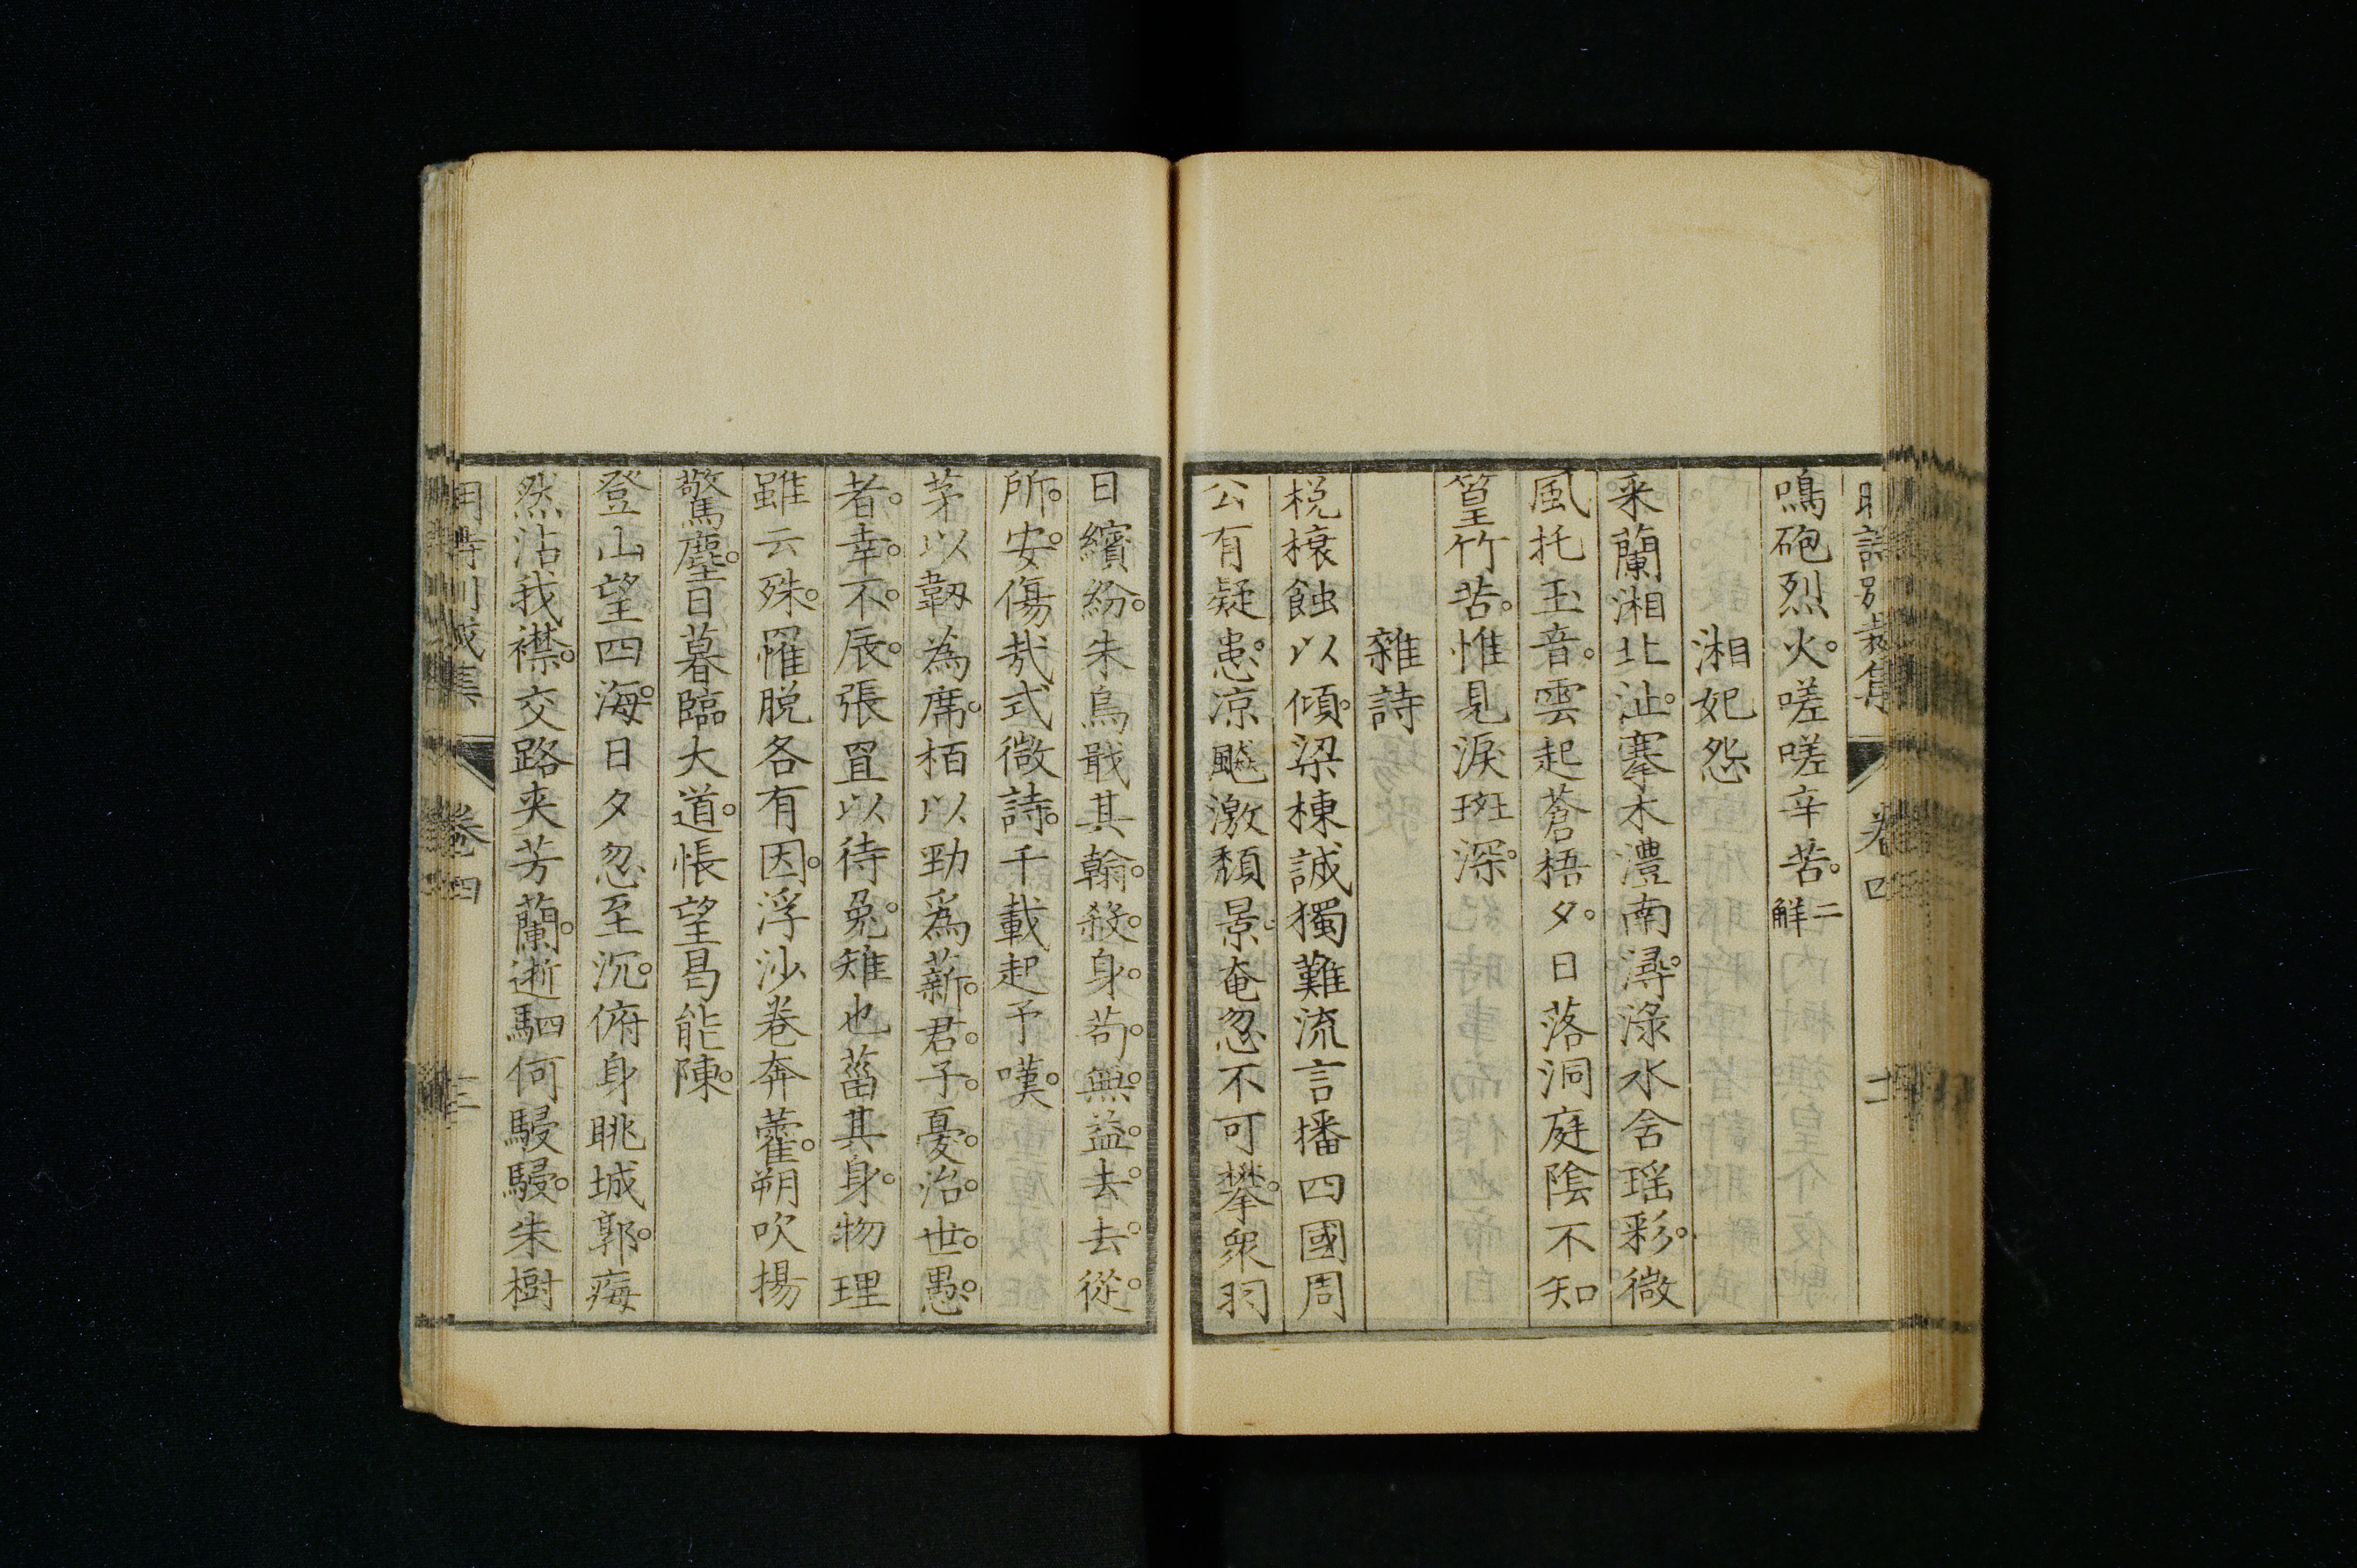 明詩別裁集 卷四 十二
鳴砲烈火嗟嗟辛苦二解
湘妃怨
采蘭湘北沚搴木澧南潯淥水含瑤彩微
風托玉音雲起蒼梧夕日落洞庭陰不知
篁竹苦惟見淚斑深
雜詩
梲榱蝕以傾梁棟誠獨難流言播四國周
公有疑患凉飈激頹景奄忽不可攀衆羽
日繽紛朱鳥戢其翰殺身苟無益去去從
所安傷哉式微詩千載起予嘆
茅以韌為席栢以勁爲薪君子憂治世愚
者幸不辰張罝以待兔雉也菑其身物理
雖云殊罹脱各有因浮沙卷奔藿朔吹揚
驚塵日暮臨大道悵望曷能陳
登山望四海日夕忽至沉俯身眺城郭痗
然沾我襟交路夾芳蘭逝駟何駸駸朱樹
明詩別裁集 卷四 三